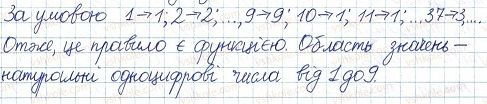 За умовою 1→1; 2→2; ..., 9→9; 10→1; 11→1; ...37→3,...
Отже, це правило є функцією. Область значень –
натуральні одноцифрові числа від 1 до 9.